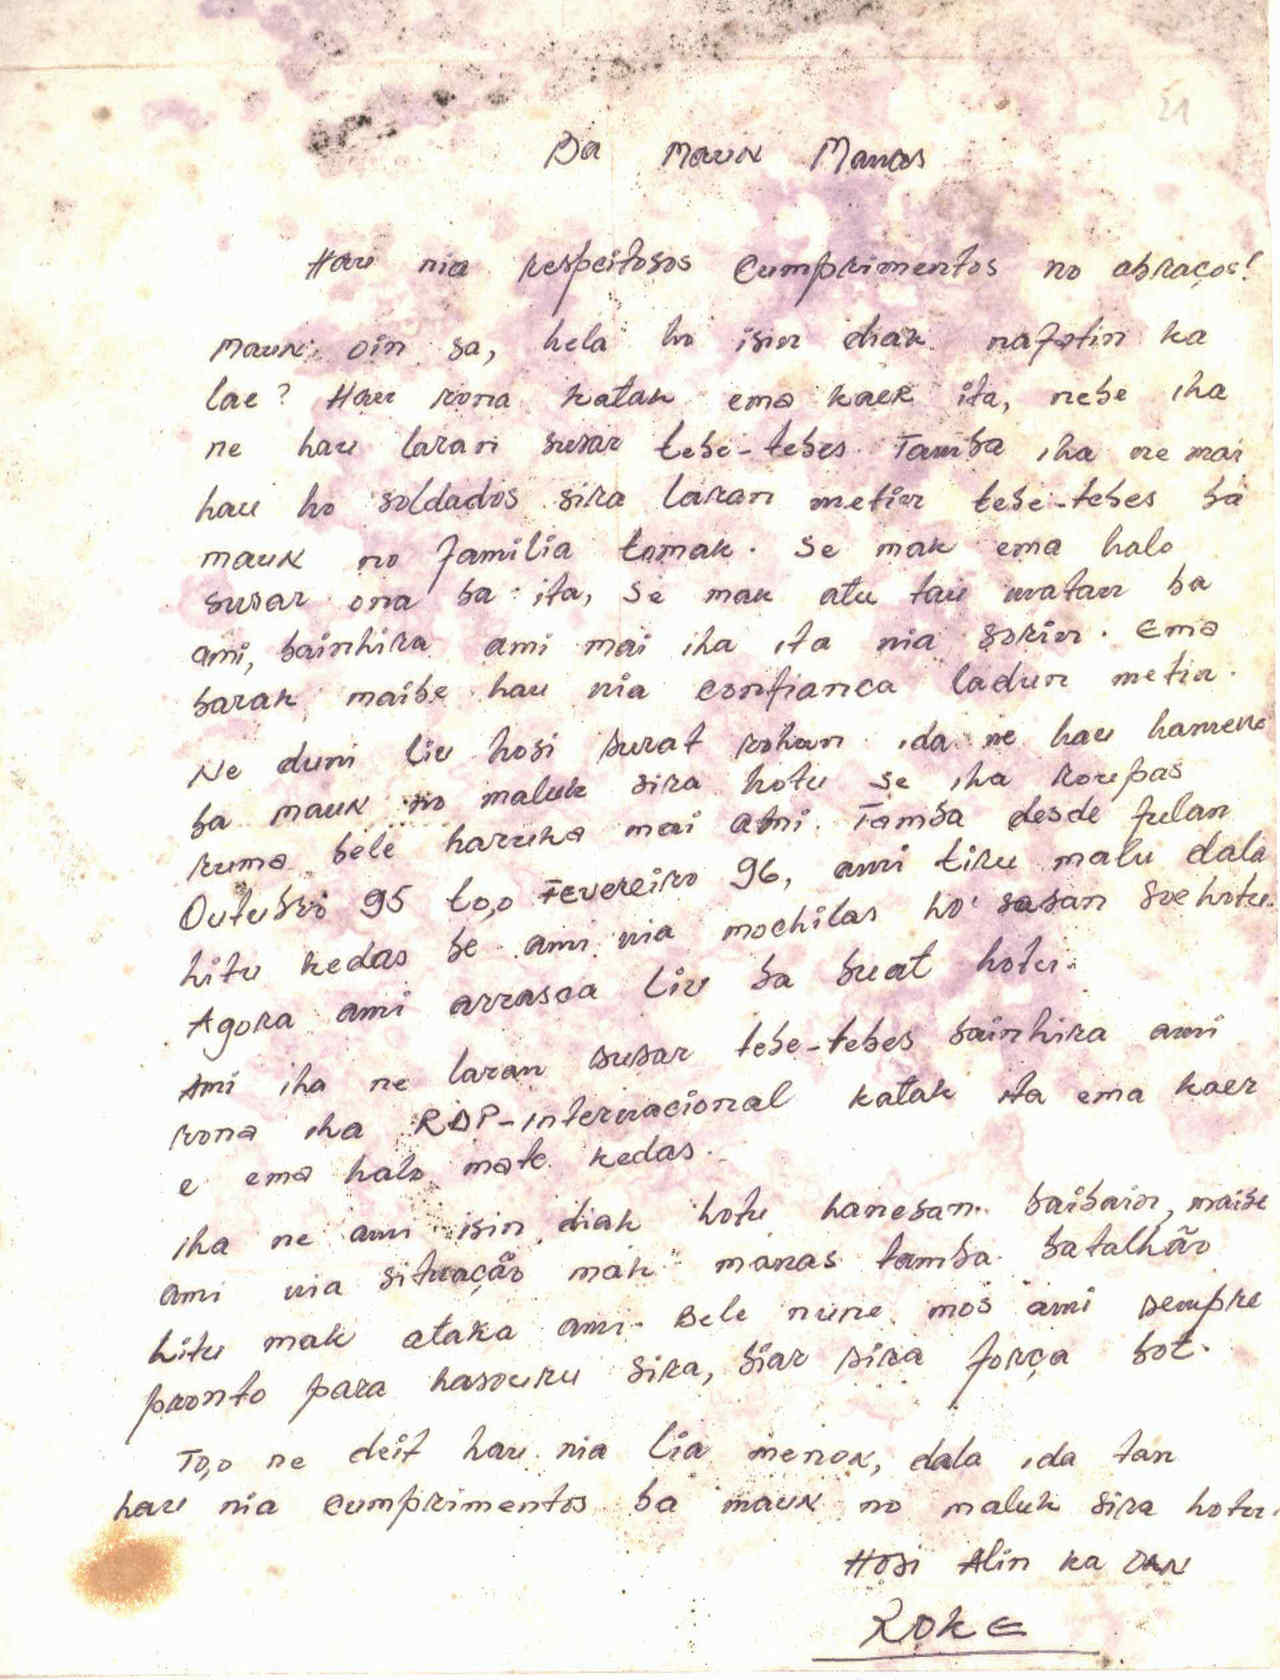 21
Ba Maun Marcos
Hau nia respeitosos Cumprimentos no abraços!
Maun, oin sa, hela ho isin diak nafatin ka
lae? Hau rona katak ema kaer ita, nebe iha
ne hau laran susar tebe-tebes. Tamba iha ne mai
hau ho soldados sira laran metin tebe-tebes ba
maun no familia tomak. Se mak ema halo
susar ona ba ita, se mak atu tau matan ba
ami, bainhira ami mai iha ita nia sorin. Ema
barak maibe hau nia confianca ladun metin.
Ne duni liu hosi surat rohan ida ne hau hamenu
ba maun no maluk sira hotu se iha roupas
ruma bele haruka mai ami. Tamba desde fulan
Outubro 95 to,o Fevereiro 96, ami tiru malu dala
hitu kedas be ami nia mochilas ho sasan soe hotu.
Agora ami arrasca liu ba buat hotu.
Ami iha ne laran susar tebe-tebes bainhira ami
rona iha RDP-internacional katak ita ema kaer
e ema halo mate kedas.
Iha ne ami isin diak hotu hanesan baibain, maibe
ami nia situação mak manas tamba batalhão
hitu mak ataka ami. Bele nune mos ami sempre
pronto para hasouru sira, biar sira força bot.
To,o ne deit hau nia lia menon, dala ida tan
hau nia cumprimentos ba maun no maluk sira hotu.
Hosi Alin ka OAN
ROKE